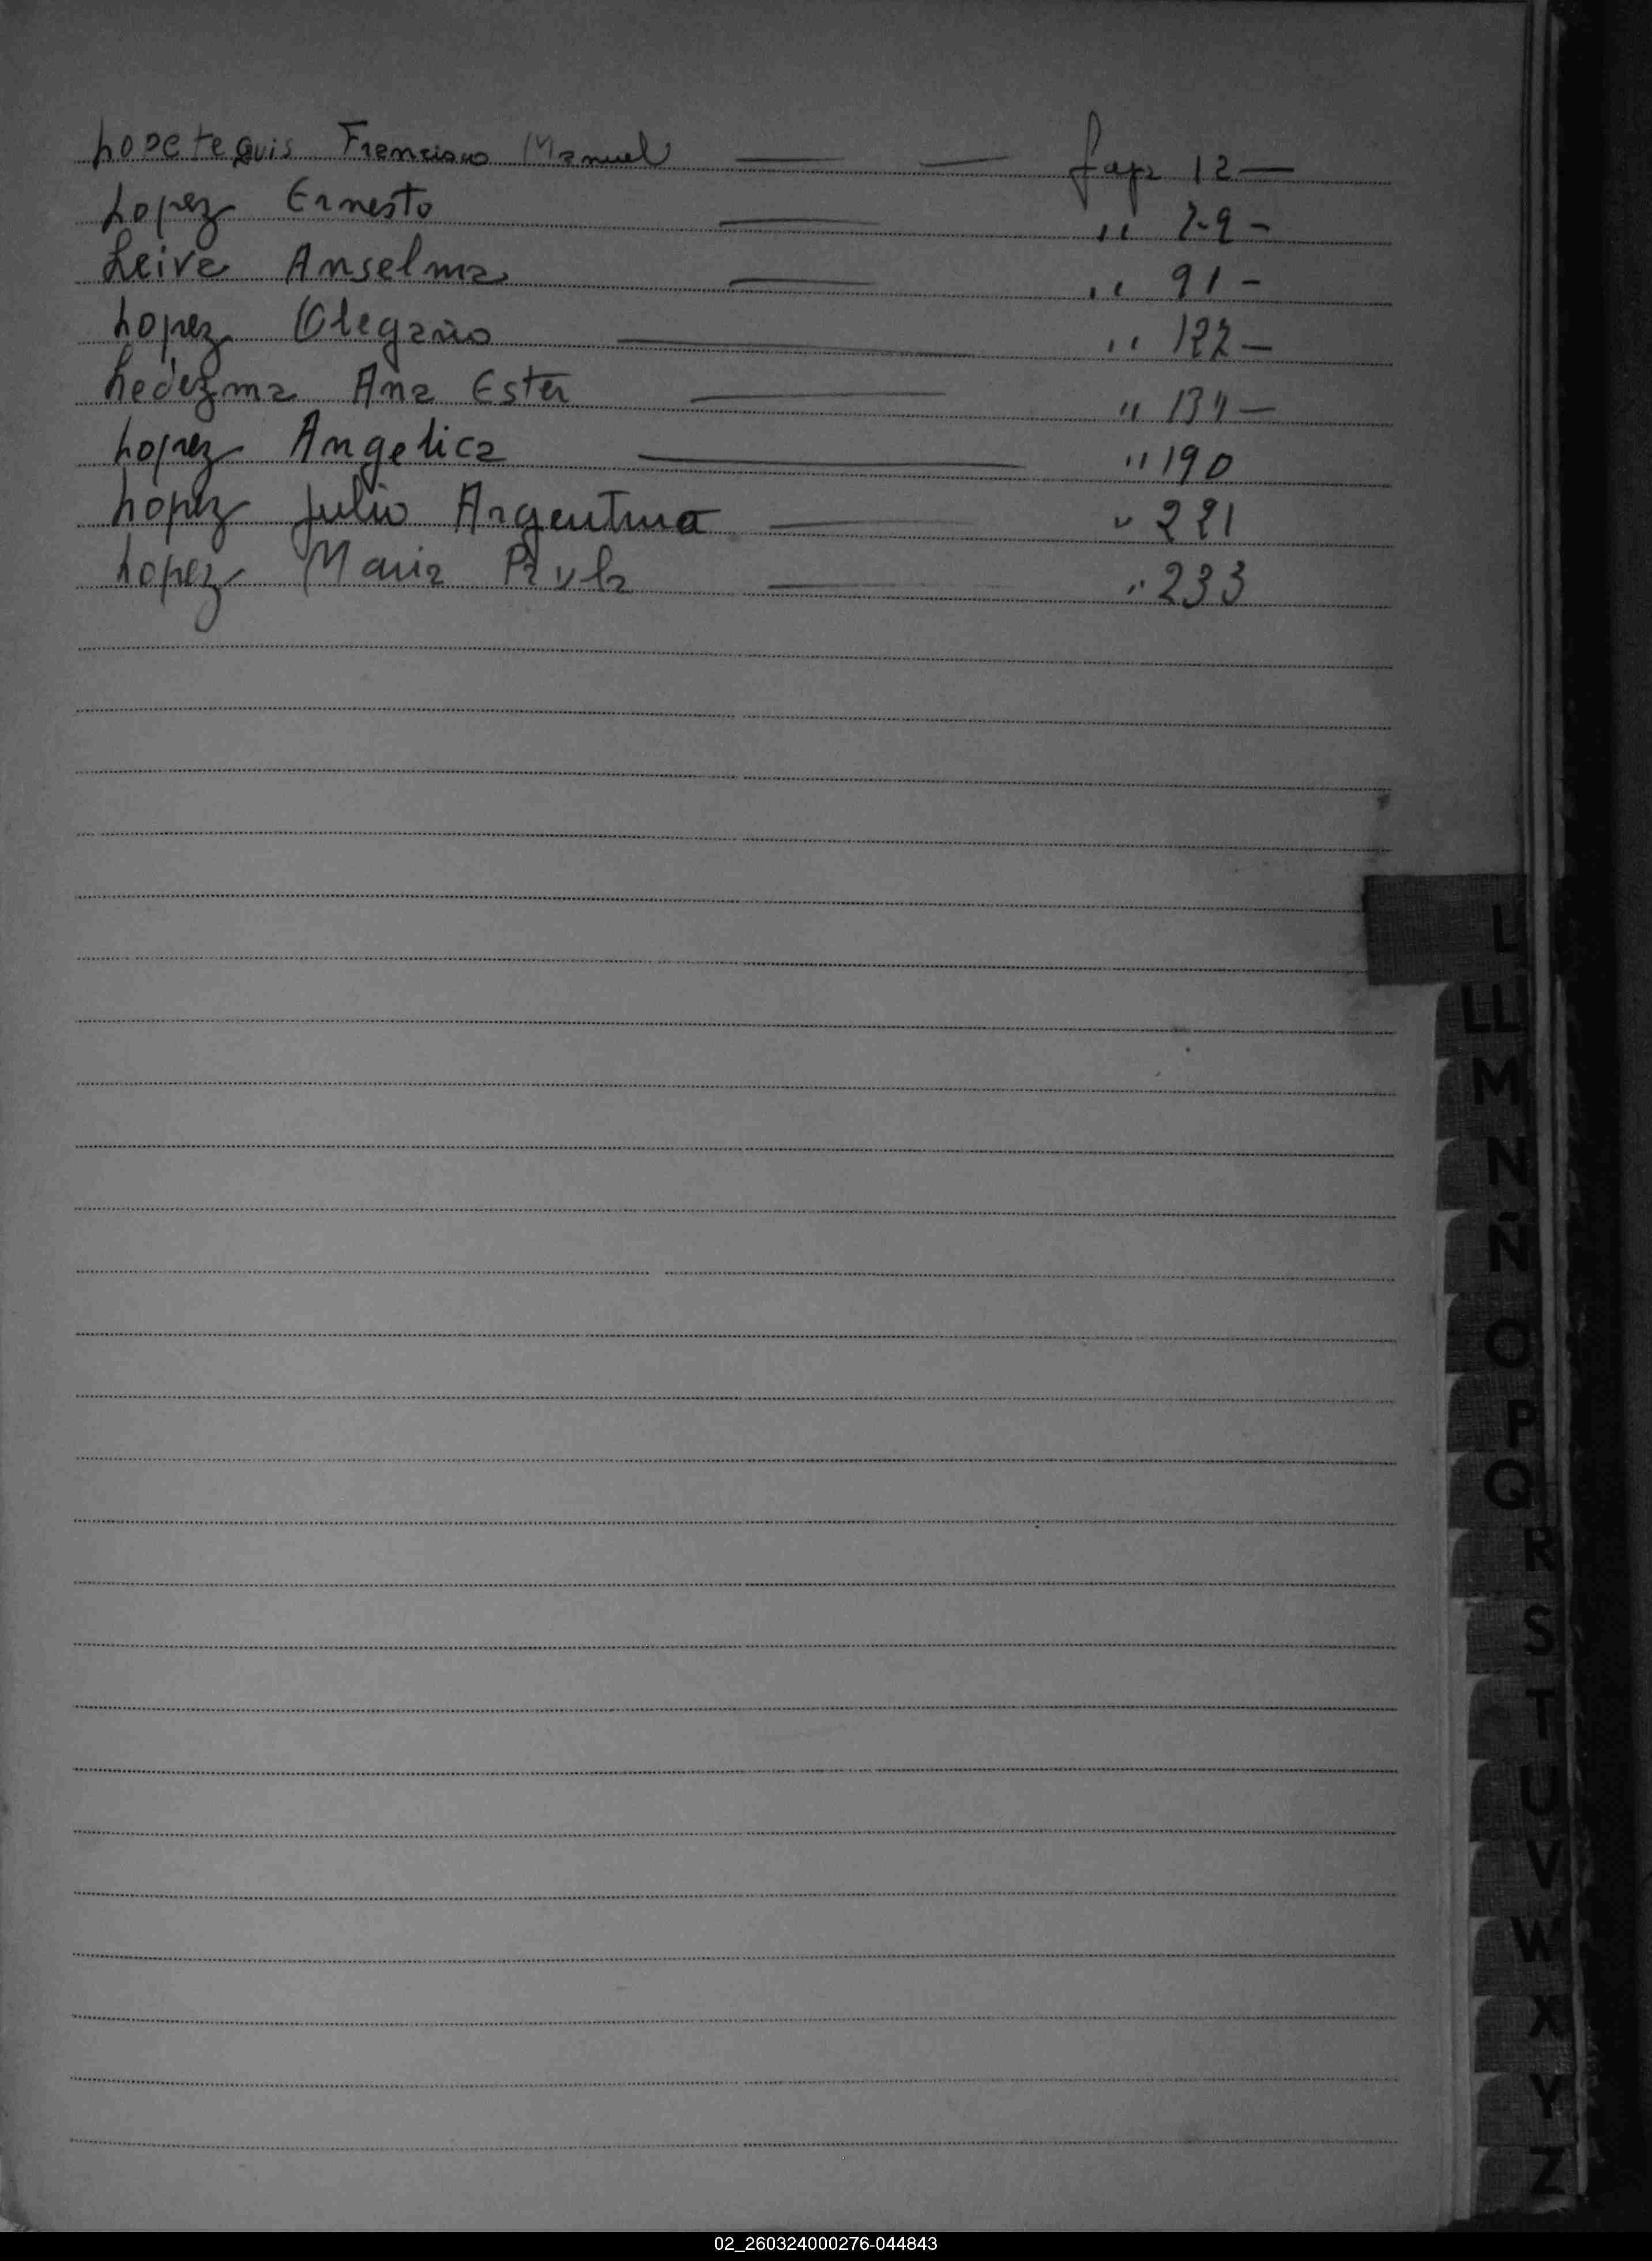 Lopetequis Francisco Manuel — — fap 12 —
Lopez Ernesto — " 29 -
Leiva Anselma — " 91 -
Lopez Olegario — " 122 —
Ledezma Ana Ester — " 134 —
Lopez Angelica — " 190
Lopez Julio Argentina — " 221
Lopez Maria Paula — " 233
L
LL
M
N
Ñ
O
P
Q
R
S
T
U
V
W
X
Y
Z
02_260324000276-044843